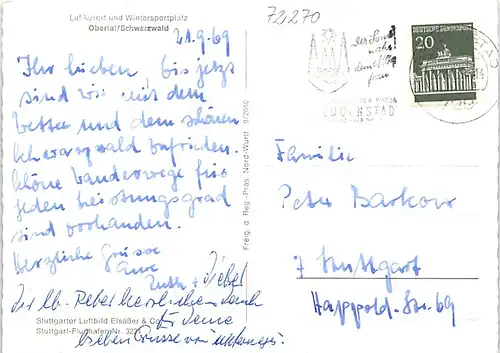 Luftkurort und Wintersportplatz
Obertal/Schwarzwald
21.9.69
Ihr Lieben, bis jetzt
sind wir mit dem
Wetter und dem schönen
Schwarzwald zufrieden.
Schöne Wanderwege für
jeden Leistungsgrad
sind vorhanden.
Herzliche Grüsse
Eure
Ruth +
Dir lb. Peter herzlichen Dank
für Deine
lieben Grüsse von unterwegs.
Stuttgarter Luftbild Elsäßer & Co.
Stuttgart-Flughafen Nr.
Freig. d. Reg.-Präs. Nord-Württ. 9/2090
721270
DEUTSCHE BUNDESPOST
20
Familie
Peter Barkow
7 Stuttgart
Happold-Str. 69